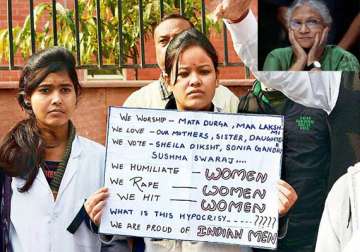 We WORSHIP - MATA DURGA, MAA LAKSHMI
We LOVE - OUR MOTHERS, SISTER, DAUGHTER
We VOTE - SHEILA DIKSHT, SONIA GANDHI
SUSHMA SWARAJ....
We HUMILIATE WOMEN
We RAPE WOMEN
We HIT WOMEN
WHAT IS THIS HYPOCRISY.....?????
We ARE PROUD OF INDIAN MEN